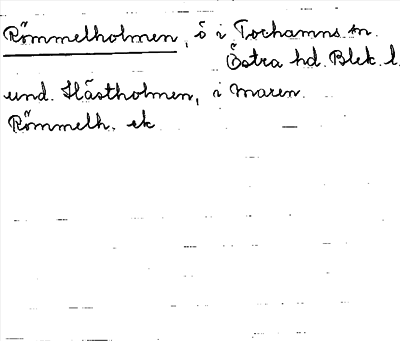 Römmelholmen, ö i Torhamns sn.
Östra hd. Blek. l.
und. Hästholmen, i maren.
Römmelh. ek